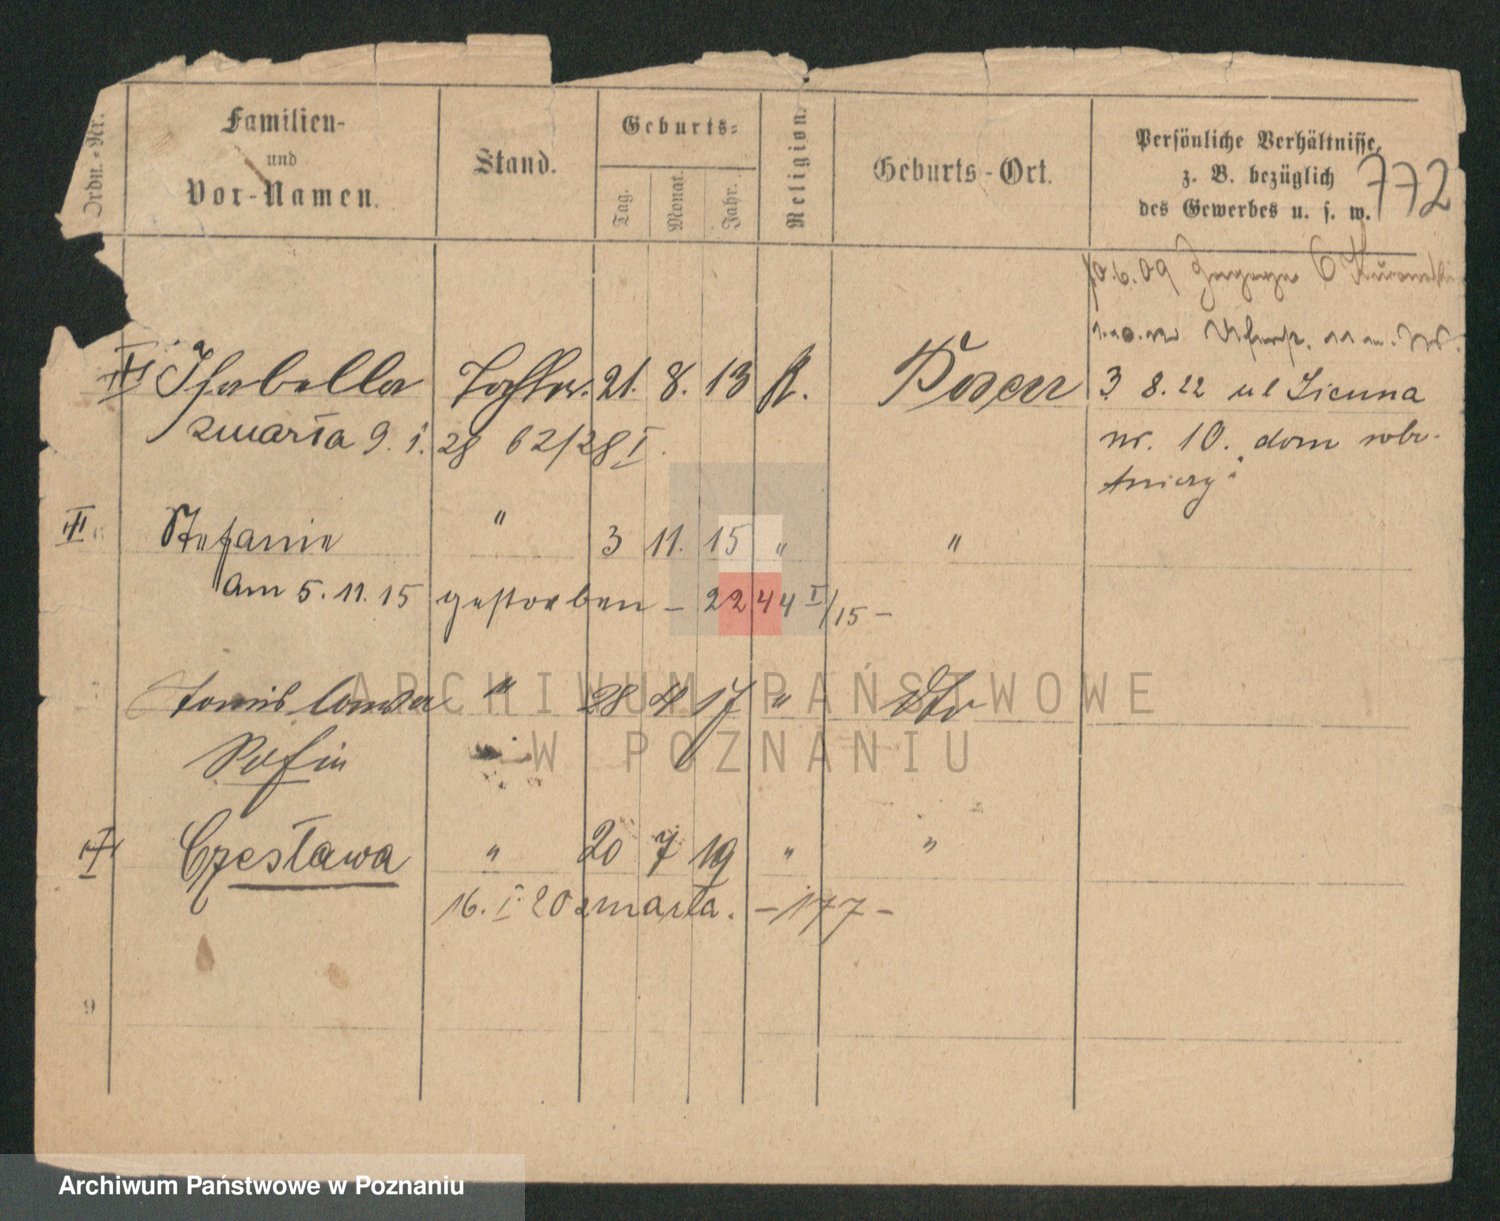 Ordn.-Nr.
Familien-
und
Vor-Namen.
Stand.
Geburts-
Tag.
Monat.
Jahr.
Religion.
Geburts-Ort.
Persönliche Verhältnisse,
z. B. bezüglich
des Gewerbes u. s. w.
772
10.6.09
III Isabella Tochter. 21. 8. 13 K. Posen
zmarła 9. 1. 28 62/28 I.
3 8.22 ul
nr. 10. dom robo-
tniczy
II Stefanie " 3 11. 15 " "
am 5. 11. 15 gestorben – 2244 I/15 –
" 28 4 17 " dto
Sofie
I Czesława " 20 7 19 " "
16. I. 20 zmarła. – 177 –
9
ARCHIWUM PAŃSTWOWE
W POZNANIU
Archiwum Państwowe w Poznaniu